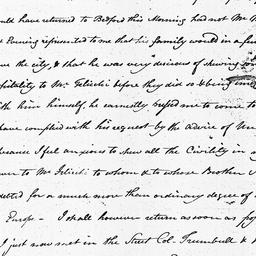 uld have returned to Bedford this Morning had not Mr
Penning represented to me that his family would in a few
ve the city, & that he was very desirous of shewing some
spitality to Mr. Felichi before they did so & being
with him himself, he earnestly pressed me to come to
have complied with his request by the advice of
because I feel anxious to shew all the Civility in my
wer to Mr. Felichi to whom & to whose Brother
debted for a much more than ordinary degree of
Europe - I shall however return as soon as
I just now met in the Street Col. Trumbull &